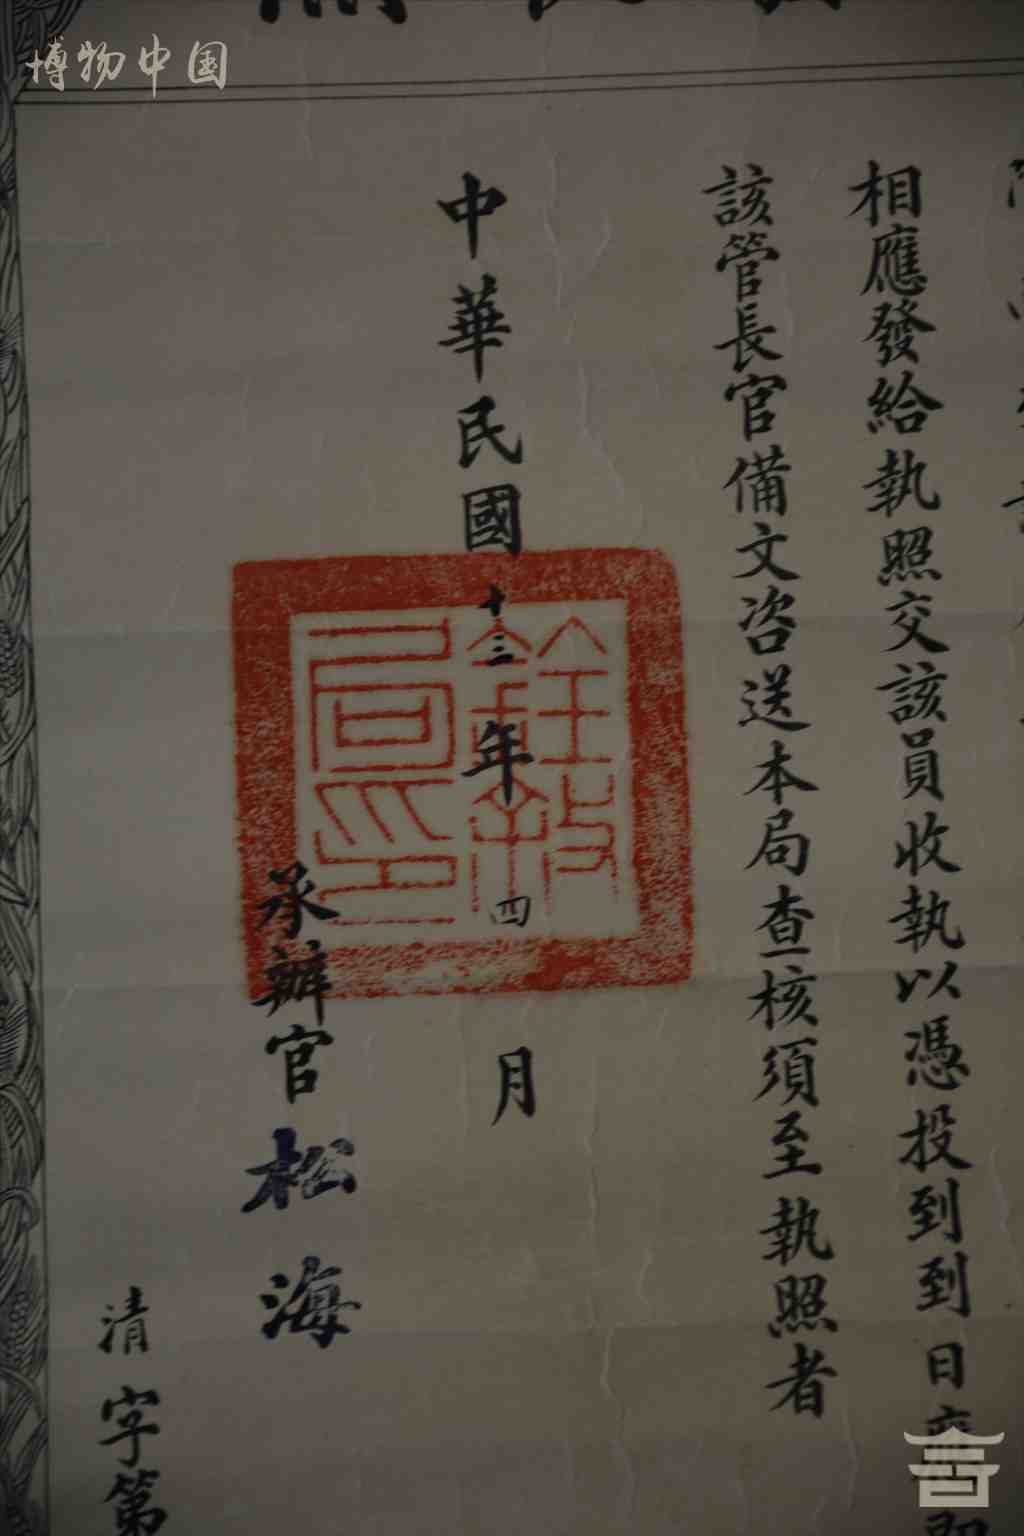 博物中国
相應發給執照交該員收執以憑投到到日應即
該管長官備文咨送本局查核須至執照者
中華民國十三年四月
銓敘局印
承辦官松海
清字第